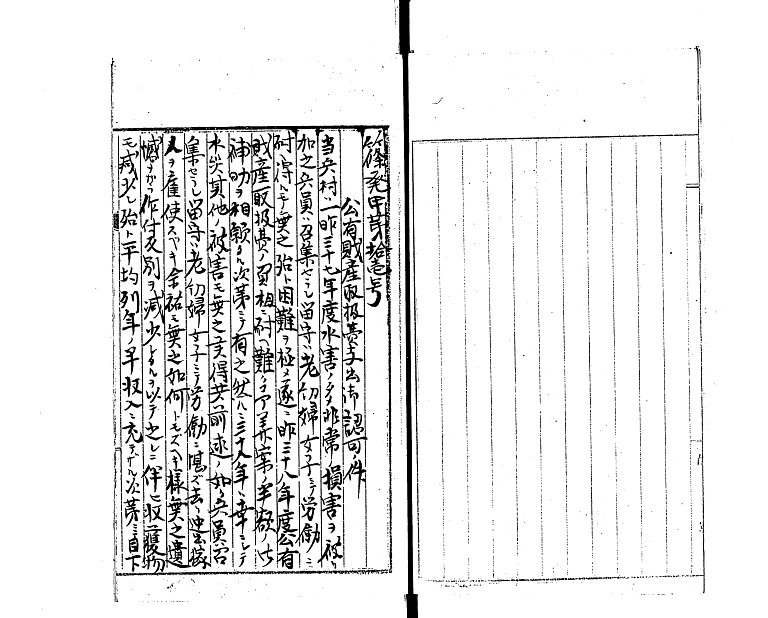 篠発甲第拾壱号
公有財産取扱費支出御認可ノ件
当矢村ハ一昨三十七年度水害ノ多非常ノ損害ヲ被リ
加之兵員ハ召集セラレ留守ハ老幼婦女子ニテ労働ニ
耐ヘ得ルモノ無之殆ト困難ヲ極メ遂ニ昨三十八年度公有
財産取扱費ノ負担ニ耐ヘ難ク
補助ヲ相願タル次第ニ有之然ルニ三十九年ハ幸ニシテ
水災其他ノ被害モ無之 前述ノ如ク兵員召
集セラレ留守ハ老幼婦女子ニテ労働ニ
人ヲ雇使スヘキ余裕モ無之如何トモスヘキ様無之遺
憾ナカラ作付反別ヲ減少シタルヲ以テ之レニ伴ヒ収獲物
モ減少シ殆ト平均例年ノ半収入ニ充タサル次第ニ目下